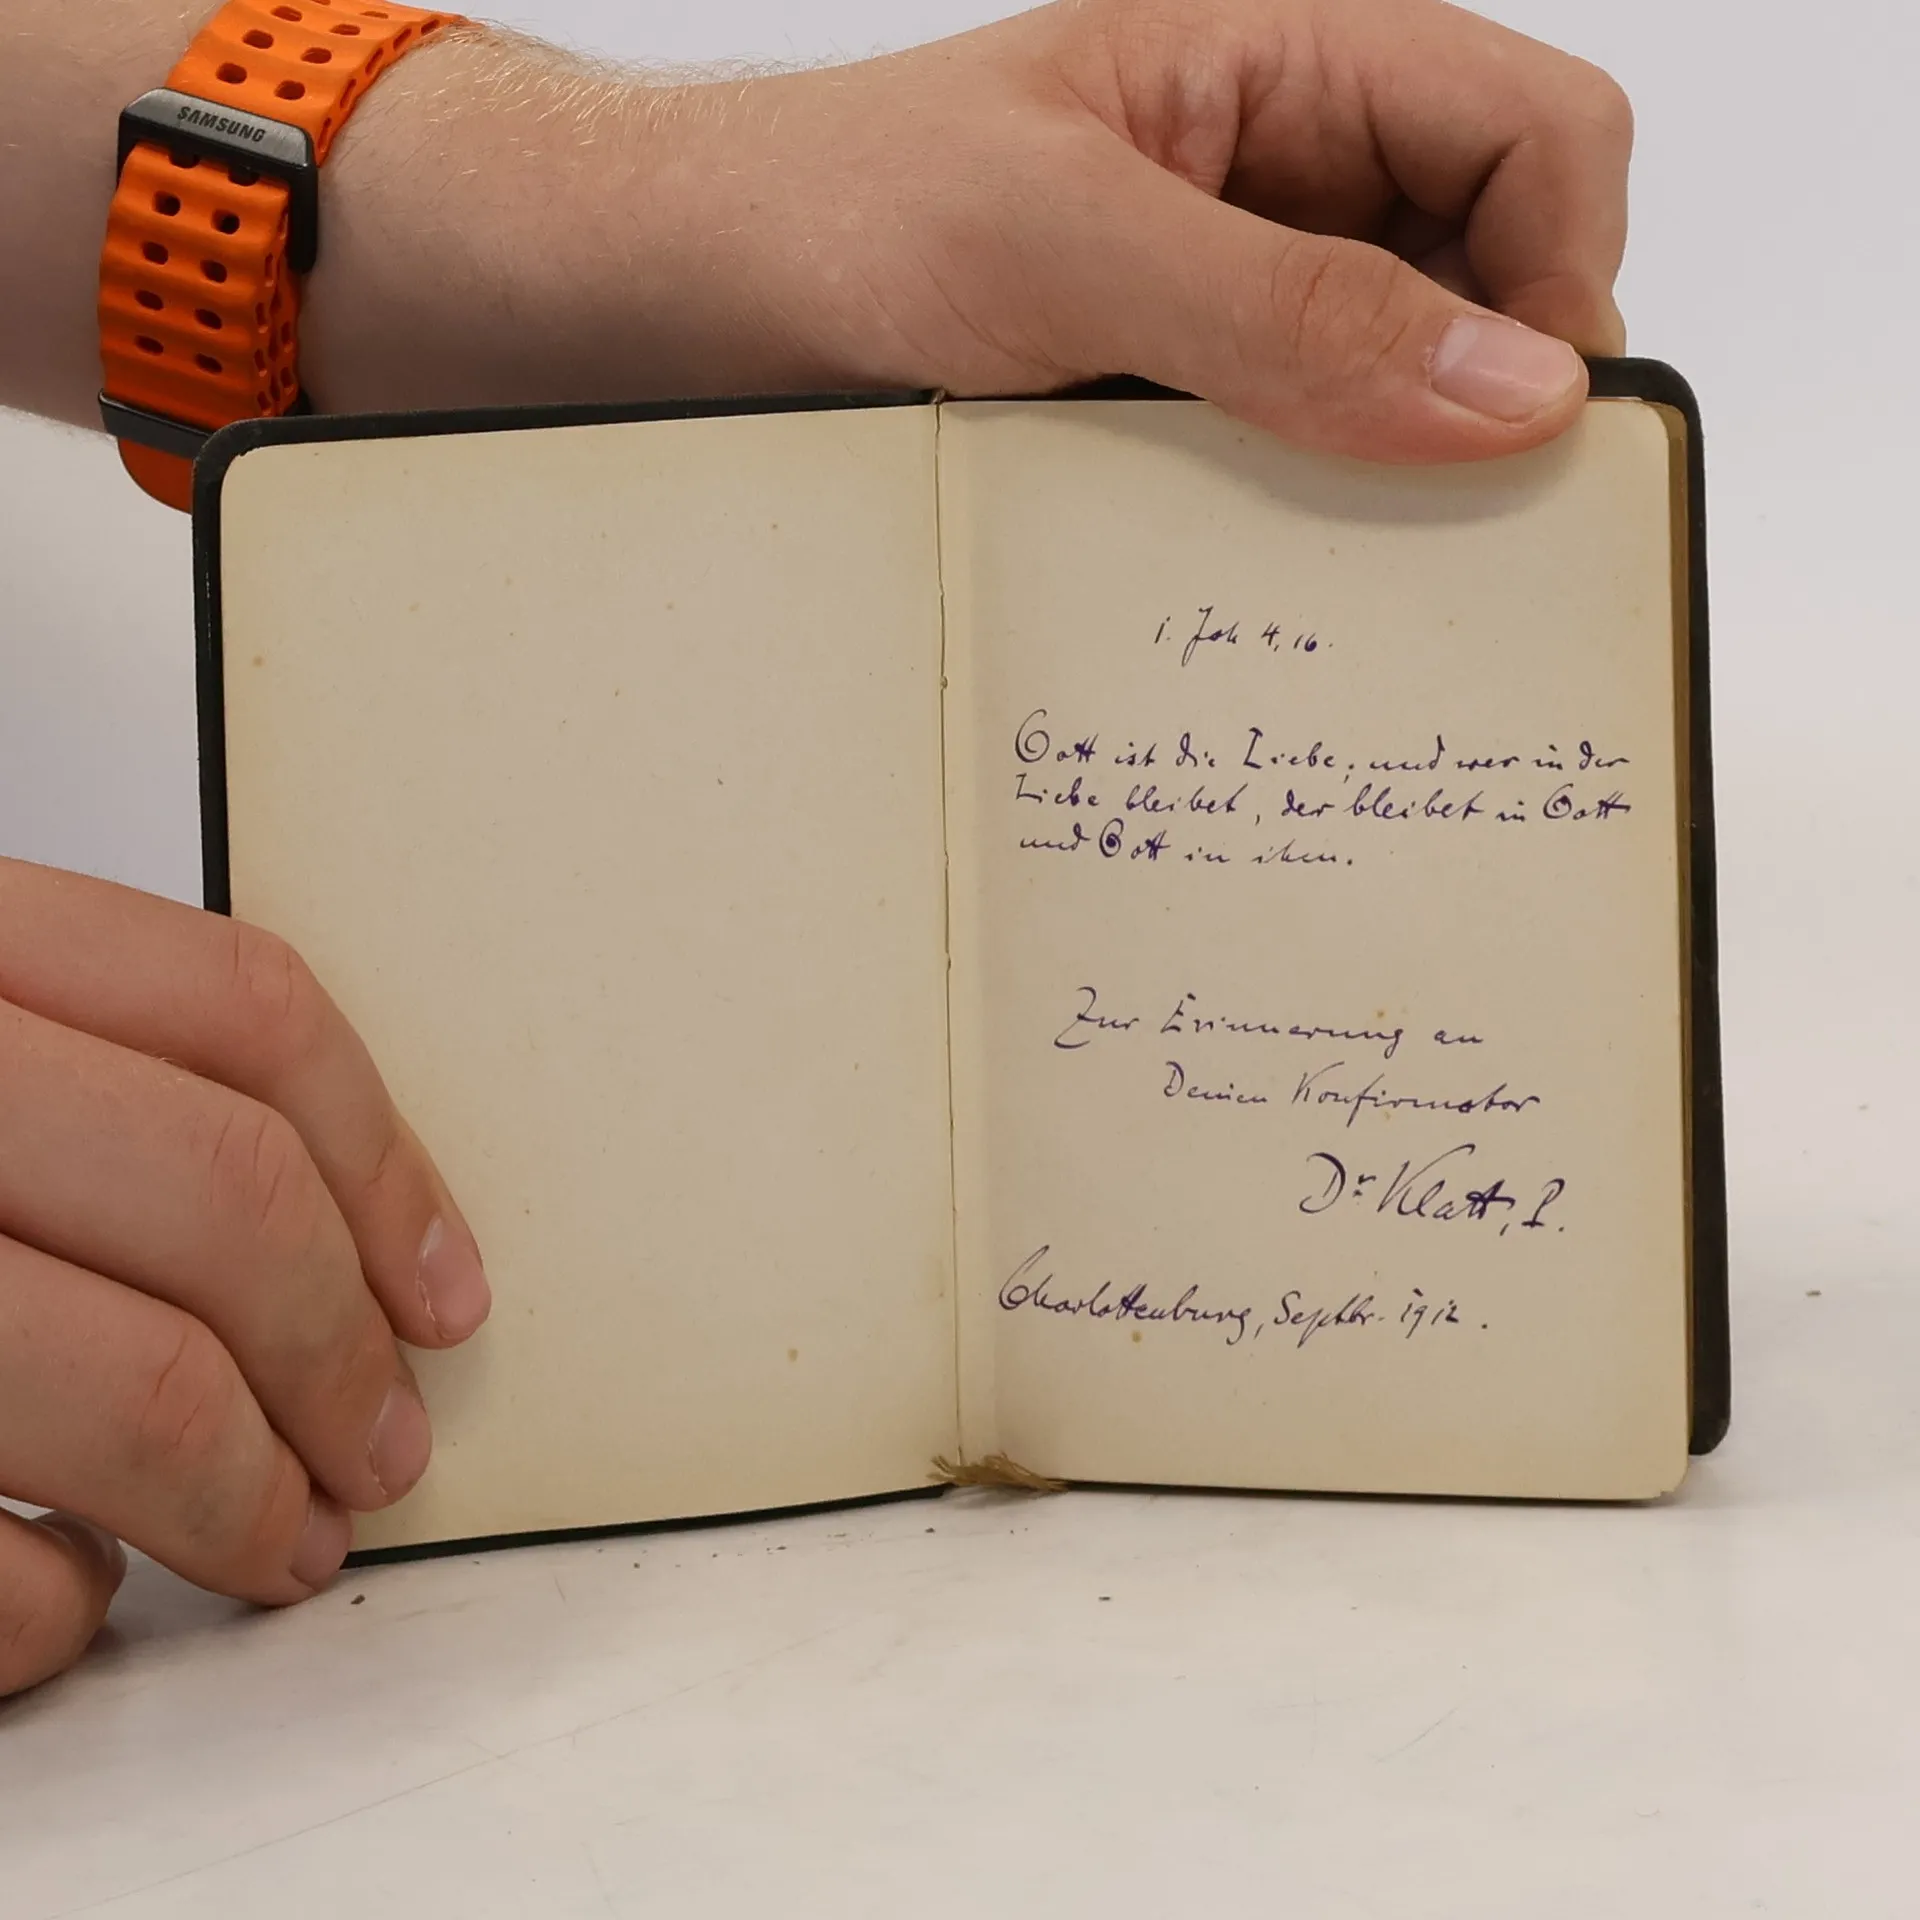 SAMSUNG
1. Joh 4, 16.
Gott ist die Liebe; und wer in der
Liebe bleibet, der bleibet in Gott
und Gott in ihm.
Zur Erinnerung an
Deinen Konfirmator
Dr Klatt, P.
Charlottenburg, Septbr. 1912.